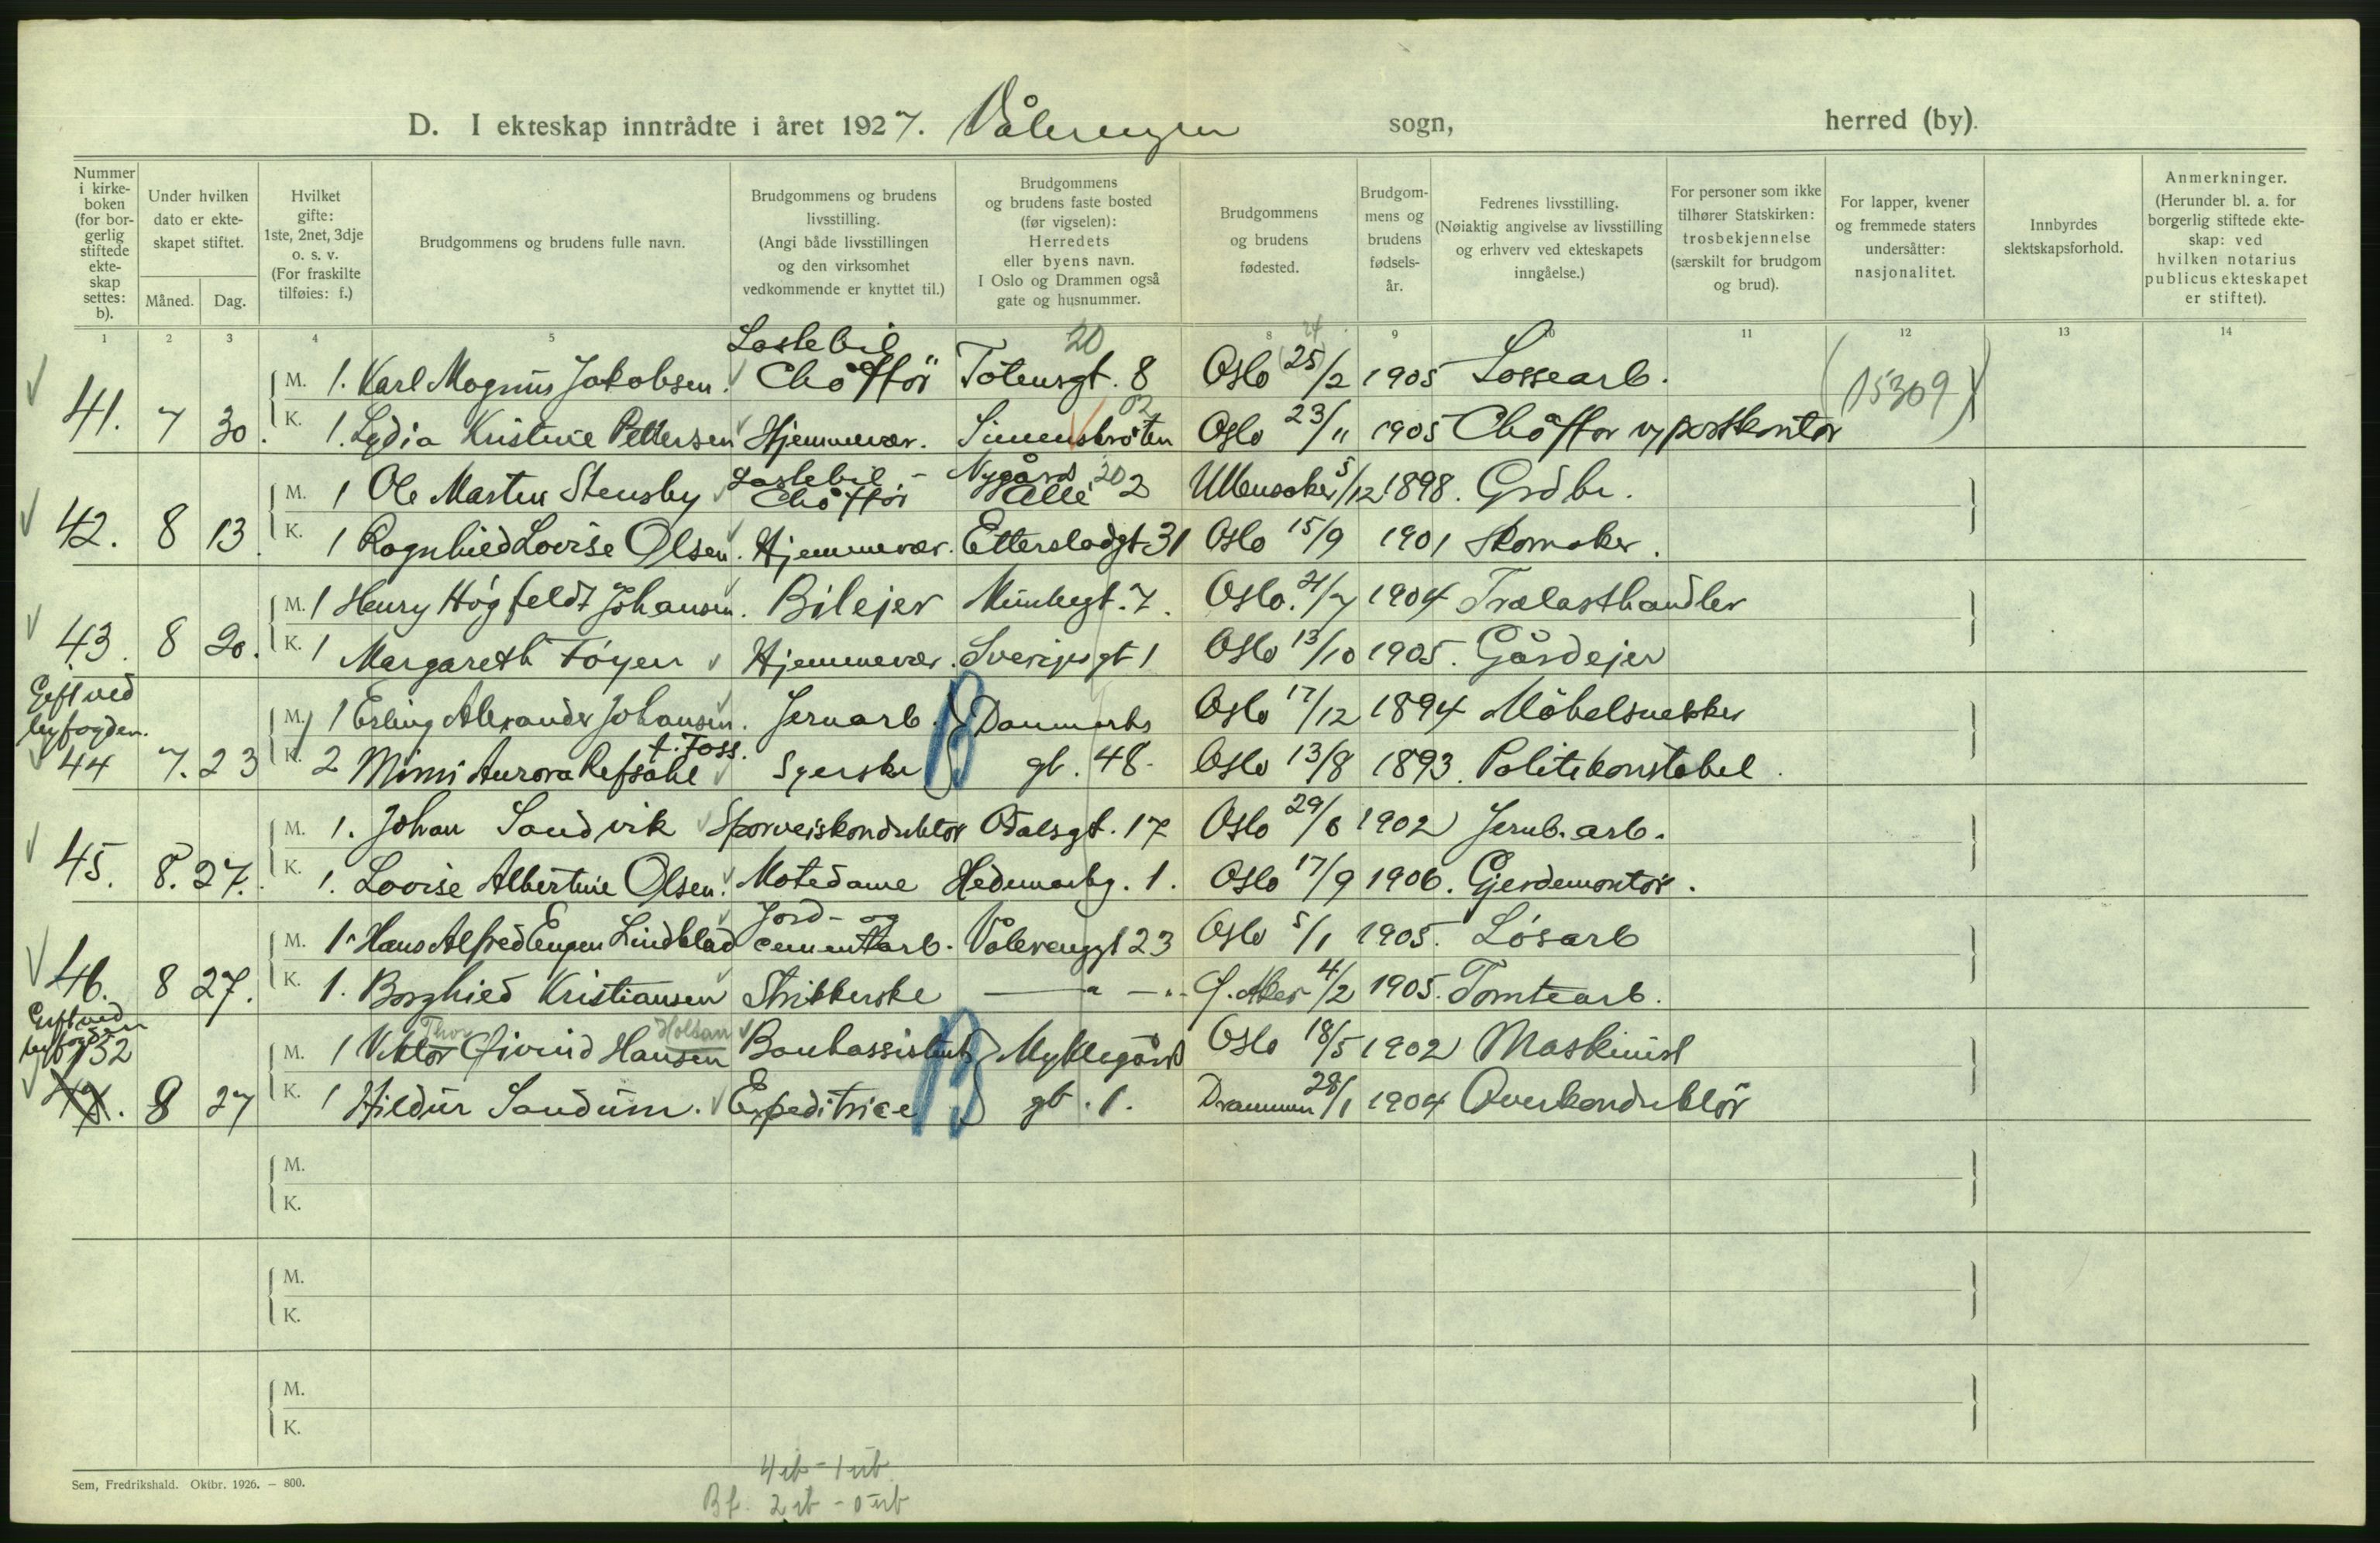 D. I ekteskap inntrådte i året 1927. Vålerengen sogn, herred (by).
Nummer i kirke-boken (for bor-gerlig stiftede ekte-skap settes: b).
Under hvilken dato er ekte-skapet stiftet.
Måned. Dag.
Hvilket gifte: 1ste, 2net, 3dje o. s. v. (For fraskilte tilføies: f.)
Brudgommens og brudens fulle navn.
Brudgommens og brudens livsstilling. (Angi både livsstillingen og den virksomhet vedkommende er knyttet til.)
Brudgommens og brudens faste bosted (før vigselen): Herredets eller byens navn. I Oslo og Drammen også gate og husnummer.
Brudgommens og brudens fødested.
Brudgom-mens og brudens fødsels-år.
Fedrenes livsstilling. (Nøiaktig angivelse av livsstilling og erhverv ved ekteskapets inngåelse.)
For personer som ikke tilhører Statskirken: trosbekjennelse (særskilt for brudgom og brud).
For lapper, kvener og fremmede staters undersåtter: nasjonalitet.
Innbyrdes slektskapsforhold.
Anmerkninger. (Herunder bl. a. for borgerlig stiftede ekte-skap: ved hvilken notarius publicus ekteskapet er stiftet).
1 2 3 4 5 8 9 10 11 12 13 14
Lastebil 20 24
M. 1. Karl Magnus Jakobsen. Chåffør Totensgt. 8 Oslo (25)/2 1905 Lossearb. (15309)
41. 7 30. K. 1. Lydia Kristine Pettersen Hjemmevær. Simensbråten 02 Oslo 23/11 1905 Chåffør v/ postkontor
M. 1 Ole Martin Stensby Lastebil-Chåffør Nygård Allé 20 2 Ullensaker 5/12 1898. Grdbr.
42. 8 13. K. 1 Ragnhild Lovise Olsen. Hjemmevær. Etterstadgt 31 Oslo 15/9 1901 Skomaker.
M. 1 Henry Høgfeldt Johansen. Bilejer Munkegt. 7. Oslo. 21/7 1904 Trælasthandler
43. 8 20. K. 1 Margareth Føyen Hjemmevær. Sverigesgt 1 Oslo 13/10 1905. Gårdejer
Gift ved byfogden.
M. 1 Erling Alexander Johansen. Jernarb. B Danmarks Oslo 17/12 1894 Møbelsnekker
f. Foss.
44 7. 23 K. 2 Mimi Aurora Refsahl Syerske gt. 48. Oslo 13/8 1893. Politikonstabel.
M. 1. Johan Sandvik Sporveiskonduktør Odalsgt. 17 Oslo 29/6 1902 Jernb. arb.
45. 8. 27. K. 1. Lovise Albertine Olsen. Motedame Hedemarkg. 1. Oslo 17/9 1906. Gjerdemontør.
M. 1. Hans Alfred Eugen Lindblad Jord- og cementarb. Vålerenggt 23 Oslo 5/1 1905. Løsarb
46. 8 27. K. 1. Borghild Kristiansen Strikkerske — " — Ø. Aker 4/2 1905. Tomtearb.
Gift ved byfogden
Thor Holtan
132 M. 1 Viktor Øivind Hansen Bankassistent B Myklegård Oslo 18/5 1902 Maskinist
47. 8 27 K. 1 Hildur Sandum. Expeditrice gt. 1. Drammen 28/1 1904 Overkonduktør
M.
K.
M.
K.
M.
K.
Sem, Fredrikshald. Oktbr. 1926. – 800.
4 ib - 1 ub
Bf. 2 ib - 0 ub